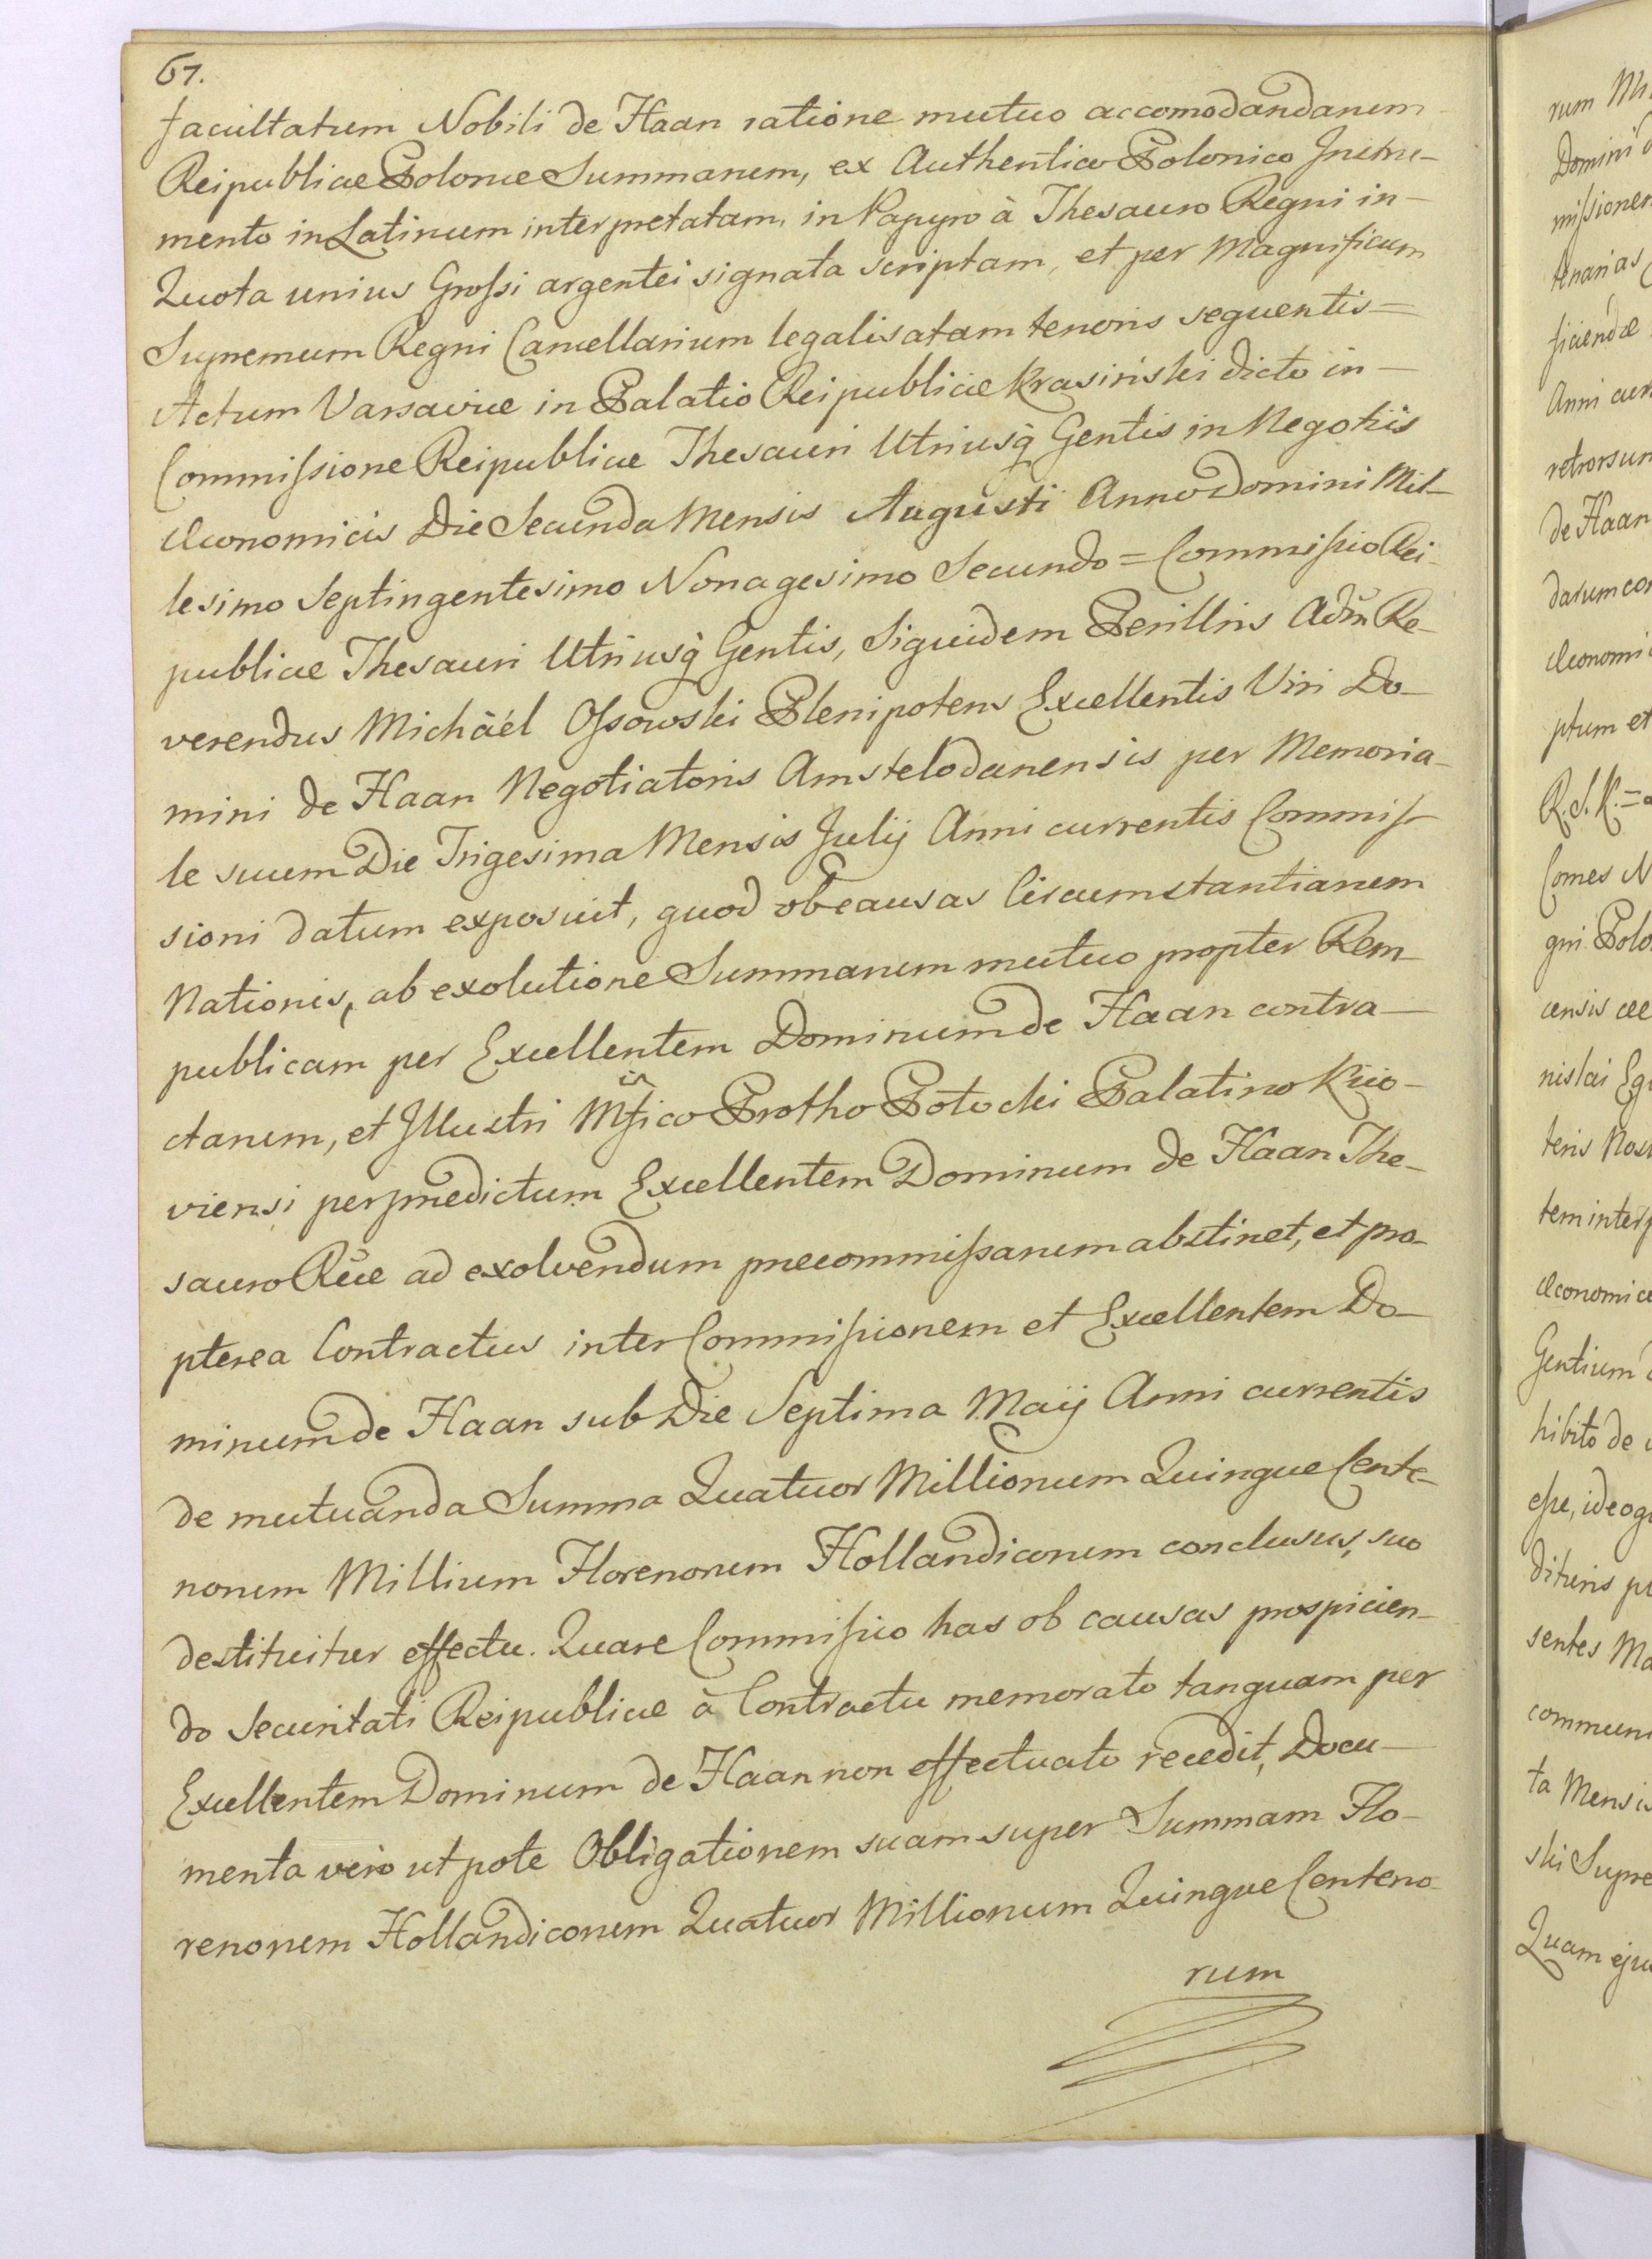 61.
facultatum Nobili de Haan ratione mutuo accomodandarum
Reipublicæ Polonæ Summarum, ex Authentico Polonico Instru-
mento in Latinum interpretatam, in Papyro à Thesauro Regni in-
Quota unius Grossi argentei signata scriptam, et per Magnificum
Supremum Regni Cancellarium legalisatam tenoris sequentis =
Actum Varsaviæ in Palatio Reipublicæ Krasiński dicto in-
Commissione Reipublicæ Thesauri Utriusq̃ Gentis in Negotiis
Œconomicis Die Secunda Mensis Augusti Anno Domini Mil-
lesimo Septingentesimo Nonagesimo Secundo = Commissio Rei-
publicæ Thesauri Utriusq̃ Gentis, Siquidem Perillris Adm̃ Re-
verendus Michäel Ossowski Plenipotens Excellentis Viri Do-
mini de Haan Negotiatoris Amstelodanensis per Memoria-
le suum Die Trigesima Mensis Julij Anni currentis Commis-
sioni datum exposuit, quod ob causas Circumstantiarum
Nationis, ab exolutione Summarum mutuo propter Rem-
publicam per Excellentem Dominum de Haan contra-
ctarum, et Illustri Mfico in Protho Potocki Palatino Kijo-
viensi per prædictum Excellentem Dominum de Haan The-
sauro Rũæ ad exolvendum præcommissarum abstinet, et pro-
pterea Contractus inter Commissionem et Excellentem Do-
minum de Haan sub Die Septima Maij Anni currentis
de mutuanda Summa Quatuor Millionum Quinque Cente-
norum Millium Florenorum Hollandicorum conclusus, suo
destituitur effectu. Quare Commissio has ob causas prospicien-
do Securitati Reipublicæ à Contractu memorato tanquam per
Excellentem Dominum de Haan non effectuato recedit, Docu-
menta vero ut pote Obligationem suam super Summam Flo-
renorum Hollandicorum Quatuor Millionum Quinque Centeno-
rum